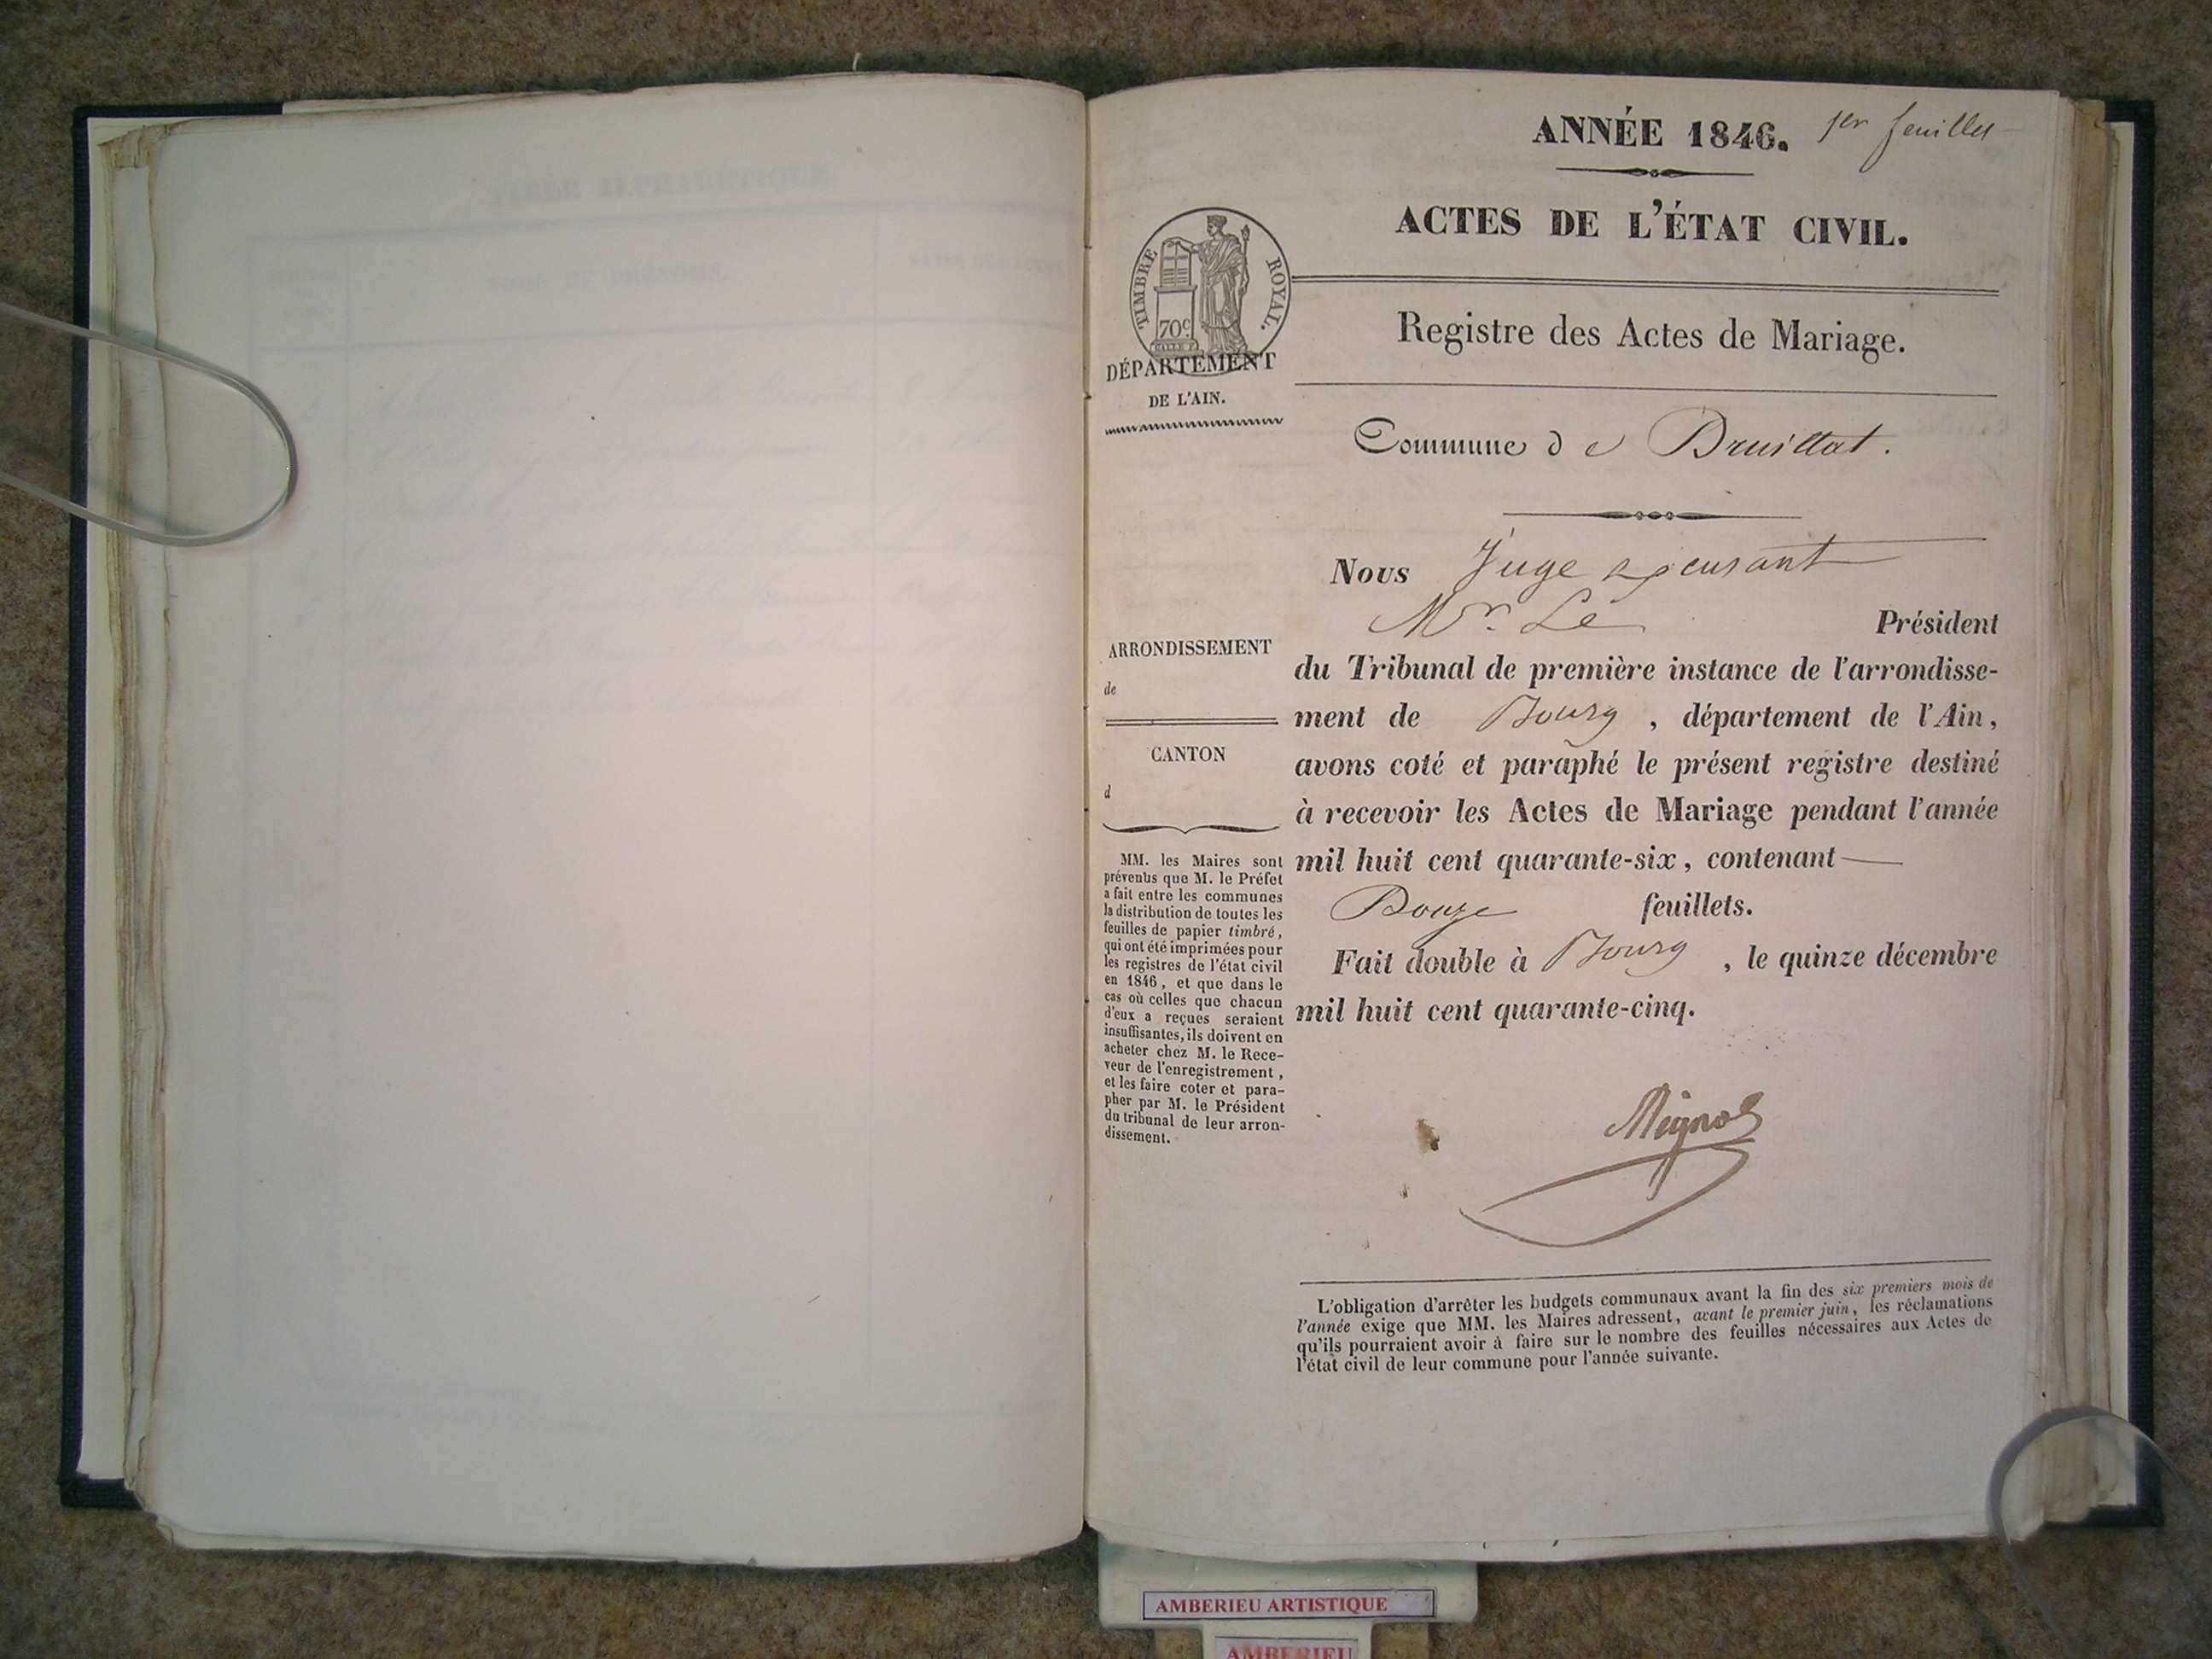 ANNÉE 1846. 1er feuillet
ACTES DE L'ÉTAT CIVIL.
TIMBRE ROYAL.
70c
Registre des Actes de Mariage.
DÉPARTEMENT
DE L'AIN.
Commune de Druillat.
Nous Juge
Mr. Le Président
du Tribunal de première instance de l'arrondisse-
ment de Bourg, département de l'Ain,
avons coté et paraphé le présent registre destiné
à recevoir les Actes de Mariage pendant l'année
mil huit cent quarante-six, contenant
Douze feuillets.
Fait double à Bourg, le quinze décembre
mil huit cent quarante-cinq.
ARRONDISSEMENT
de
CANTON
d
MM. les Maires sont
prévenus que M. le Préfet
a fait entre les communes
la distribution de toutes les
feuilles de papier timbré,
qui ont été imprimées pour
les registres de l'état civil
en 1846, et que dans le
cas où celles que chacun
d'eux a reçues seraient
insuffisantes, ils doivent en
acheter chez M. le Rece-
veur de l'enregistrement,
et les faire coter et para-
pher par M. le Président
du tribunal de leur arron-
dissement.
L'obligation d'arrêter les budgets communaux avant la fin des six premiers mois de
l'année exige que MM. les Maires adressent, avant le premier juin, les réclamations
qu'ils pourraient avoir à faire sur le nombre des feuilles nécessaires aux Actes de
l'état civil de leur commune pour l'année suivante.
AMBERIEU ARTISTIQUE
AMBERIEU